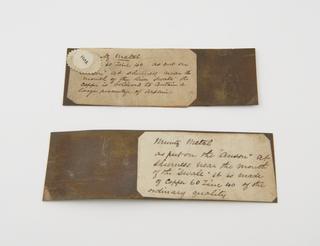 Muntz Metal
60 Zinc 40 as put on
" at Sheerness near the
mouth of the river Swale" the
copper is believed to contain a
large percentage of arsenic
Muntz Metal
as put on the "Anson" at
Sheerness near the mouth
of the "Swale" it is made
of Copper 60 Zinc 40 of the
ordinary quality